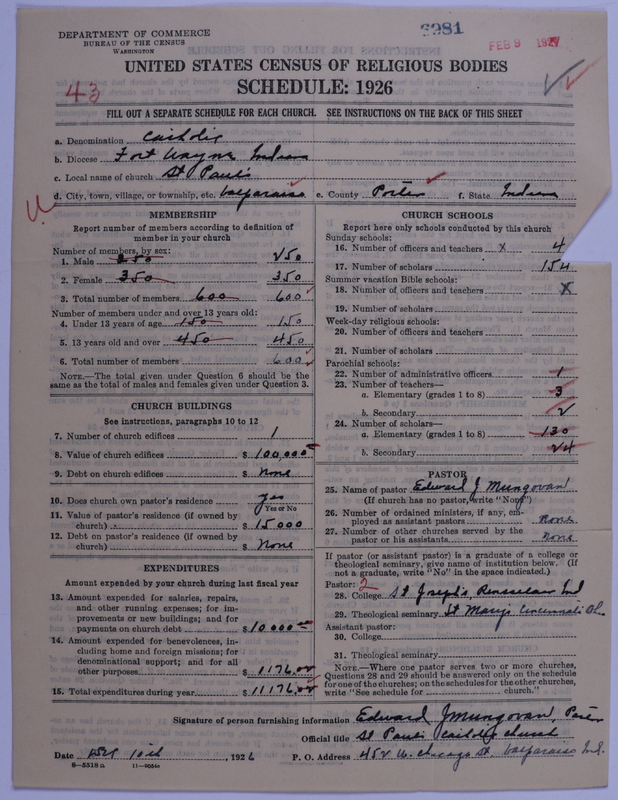 DEPARTMENT OF COMMERCE
BUREAU OF THE CENSUS
WASHINGTON
6981
FEB 9 1927
UNITED STATES CENSUS OF RELIGIOUS BODIES
SCHEDULE: 1926
43
FILL OUT A SEPARATE SCHEDULE FOR EACH CHURCH. SEE INSTRUCTIONS ON THE BACK OF THIS SHEET
a. Denomination Catholic
b. Diocese Fort Wayne Indiana
c. Local name of church St Paul's
d. City, town, village, or township, etc. Valparaiso e. County Porter f. State Indiana
MEMBERSHIP
Report number of members according to definition of
member in your church
Number of members, by sex:
1. Male 250
2. Female 350 350
3. Total number of members 600 600
Number of members under and over 13 years old:
4. Under 13 years of age 150 150
5. 13 years old and over 450 450
6. Total number of members 600
NOTE.—The total given under Question 6 should be the
same as the total of males and females given under Question 3.
CHURCH BUILDINGS
See instructions, paragraphs 10 to 12
7. Number of church edifices 1
8. Value of church edifices $ 100,000
9. Debt on church edifices $ None
10. Does church own pastor's residence yes
Yes or No
11. Value of pastor's residence (if owned by
church) $ 15000
12. Debt on pastor's residence (if owned by
church) $ None
EXPENDITURES
Amount expended by your church during last fiscal year
13. Amount expended for salaries, repairs,
and other running expenses; for im-
provements or new buildings; and for
payments on church debt $ 10000
14. Amount expended for benevolences, in-
cluding home and foreign missions; for
denominational support; and for all
other purposes $ 1176.00
15. Total expenditures during year $ 11176.00
CHURCH SCHOOLS
Report here only schools conducted by this church
Sunday schools:
16. Number of officers and teachers x 4
17. Number of scholars 154
Summer vacation Bible schools:
18. Number of officers and teachers x
19. Number of scholars
Week-day religious schools:
20. Number of officers and teachers
21. Number of scholars
Parochial schools:
22. Number of administrative officers 1
23. Number of teachers—
a. Elementary (grades 1 to 8) 3
b. Secondary 2
24. Number of scholars—
a. Elementary (grades 1 to 8) 130
b. Secondary 24
PASTOR
25. Name of pastor Edward J Mungovan
(If church has no pastor, write "None")
26. Number of ordained ministers, if any, em-
ployed as assistant pastors None
27. Number of other churches served by the
pastor or his assistants None
If pastor (or assistant pastor) is a graduate of a college or
theological seminary, give name of institution below. (If
not a graduate, write "No" in the space indicated.)
Pastor: 2
28. College St Joseph's Rensselaer Ind
29. Theological seminary St Marys Cincinnati Oh.
Assistant pastor:
30. College
31. Theological seminary
NOTE.—Where one pastor serves two or more churches,
Questions 28 and 29 should be answered only on the schedule
for one of the churches; on the schedules for the other churches,
write "See schedule for church."
Signature of person furnishing information Edward J Mungovan, Pastor
Official title St Pauls Catholic church
Date 10th, 1926 P. O. Address 452 W. Chicago St. Valparaiso Ind.
8-5318 a